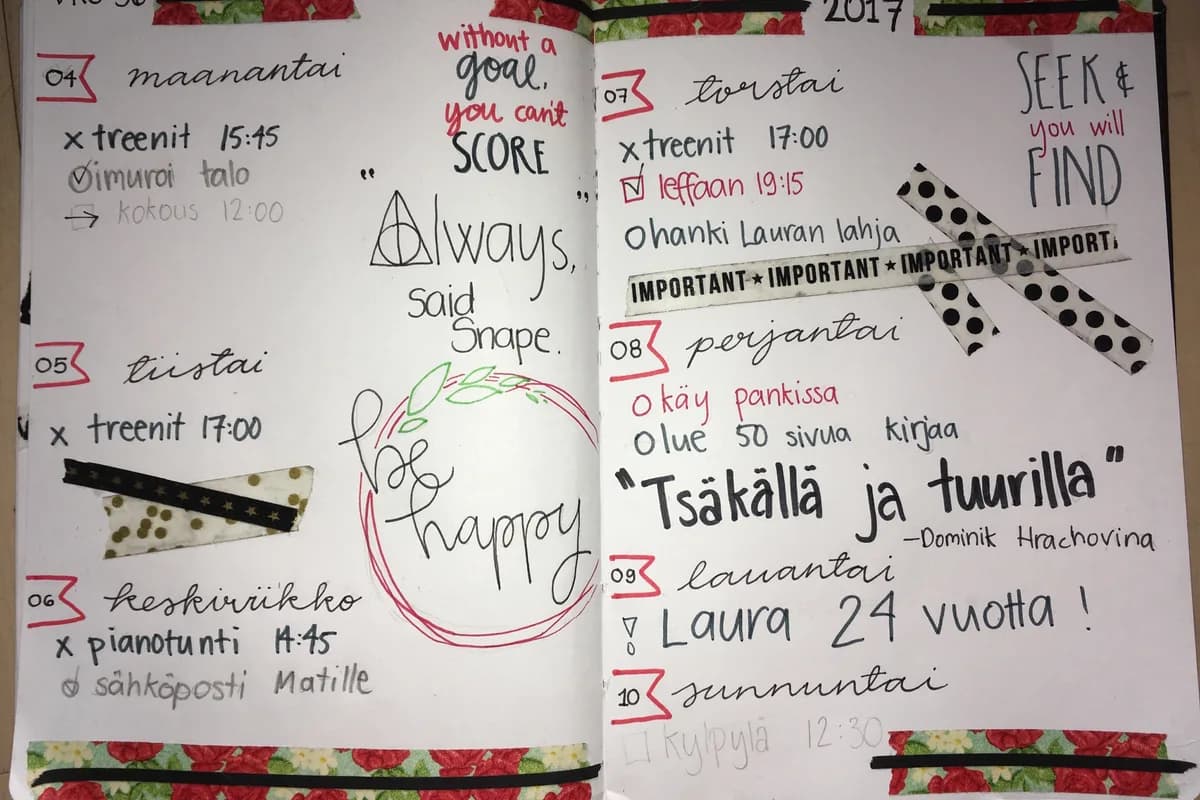 VKO 36
04 maanantai
x treenit 15:45
imuroi talo
kokous 12:00
without a
goal,
you can't
SCORE
"Always,"
said
Snape.
05 tiistai
x treenit 17:00
be
happy
06 keskiviikko
x pianotunti 14:45
sähköposti Matille
2017
07 torstai
x treenit 17:00
leffaan 19:15
o hanki Lauran lahja
SEEK &
you will
FIND
IMPORTANT ★ IMPORTANT ★ IMPORTANT ★ IMPORT
08 perjantai
o käy pankissa
o lue 50 sivua kirjaa
"Tsäkällä ja tuurilla"
-Dominik Hrachovina
09 lauantai
! Laura 24 vuotta!
10 sunnuntai
kylpylä 12:30